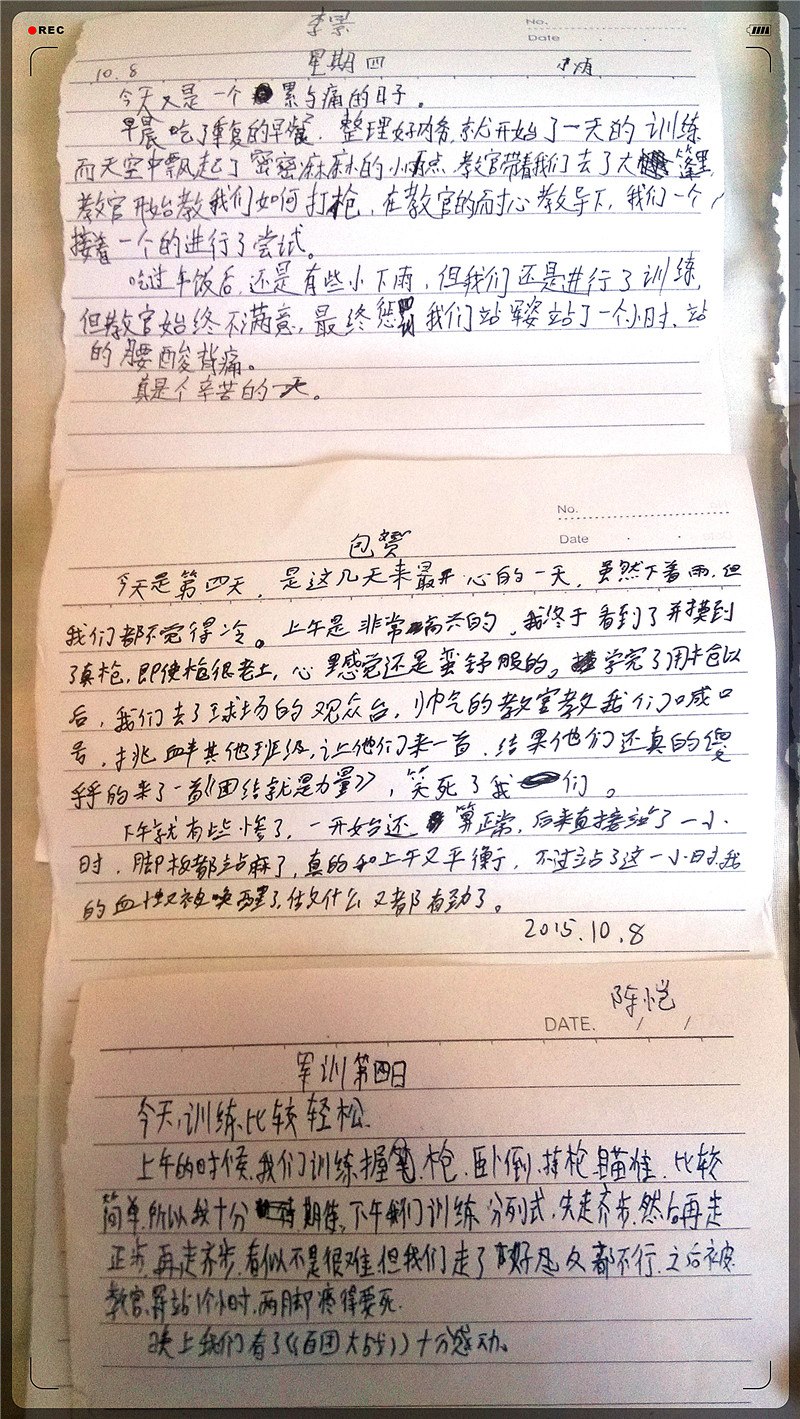 REC
李景
No.
Date
10.8 星期四 小雨
今天又是一个累与痛的日子。
早晨吃了重复的早餐，整理好内务，就开始了一天的训练
而天空中飘起了密密麻麻的小雨点，教官带着我们去了大篷里，
教官开始教我们如何打枪，在教官的耐心教导下，我们一个
接着一个的进行了尝试。
吃过午饭后，还是有些小下雨，但我们还是进行了训练，
但教官始终不满意，最终惩罚我们站军姿站了一个小时，站
的腰酸背痛。
真是个辛苦的一天。
No.
Date
包赟
今天是第四天，是这几天来最开心的一天，虽然下着雨，但
我们都不觉得冷。上午是非常高兴的，我终于看到了并摸到
了真枪，即使枪很老土，心里感觉还是蛮舒服的。学完了用枪以
后，我们去了球场的观众台，帅气的教官教我们喊口
号，挑衅其他班级，让他们来一首，结果他们还真的傻
乎乎的来了一首《团结就是力量》，笑死了我们。
下午就有些惨了，一开始还算正常，后来直接站了一小
时，脚板都站麻了，真的和上午又平衡，不过站了这一小时，我
的血性又被唤醒了，做什么又都有劲了。
2015.10.8
陈恺
DATE. / /
军训第四日
今天，训练比较轻松
上午的时候，我们训练握枪、卧倒、持枪、瞄准，比较
简单，所以我十分期待，下午我们训练分列式，先走齐步，然后再走
正步，再走齐步，看似不是很难，但我们走了好几次都不行，之后被
教官罚站1个小时，两脚疼得要死.
晚上我们看了《百团大战》十分感动。